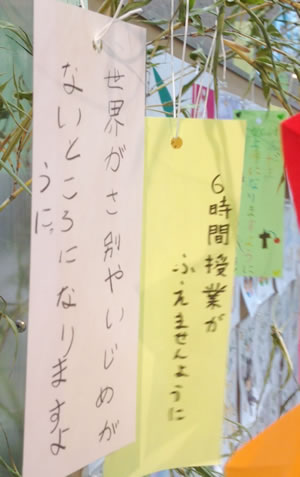 世界がさ別やいじめが
ないところになりますよ
うに。
6時間授業が
ふえませんように